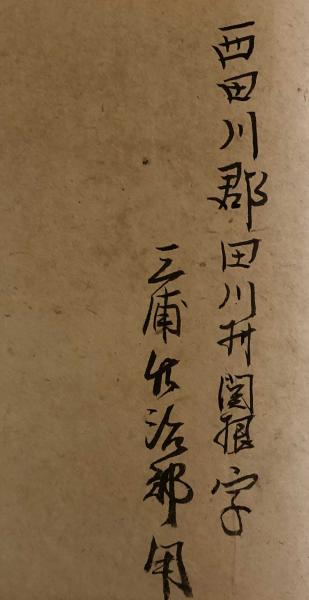 西田川郡田川村関根字
三浦竹治郎用